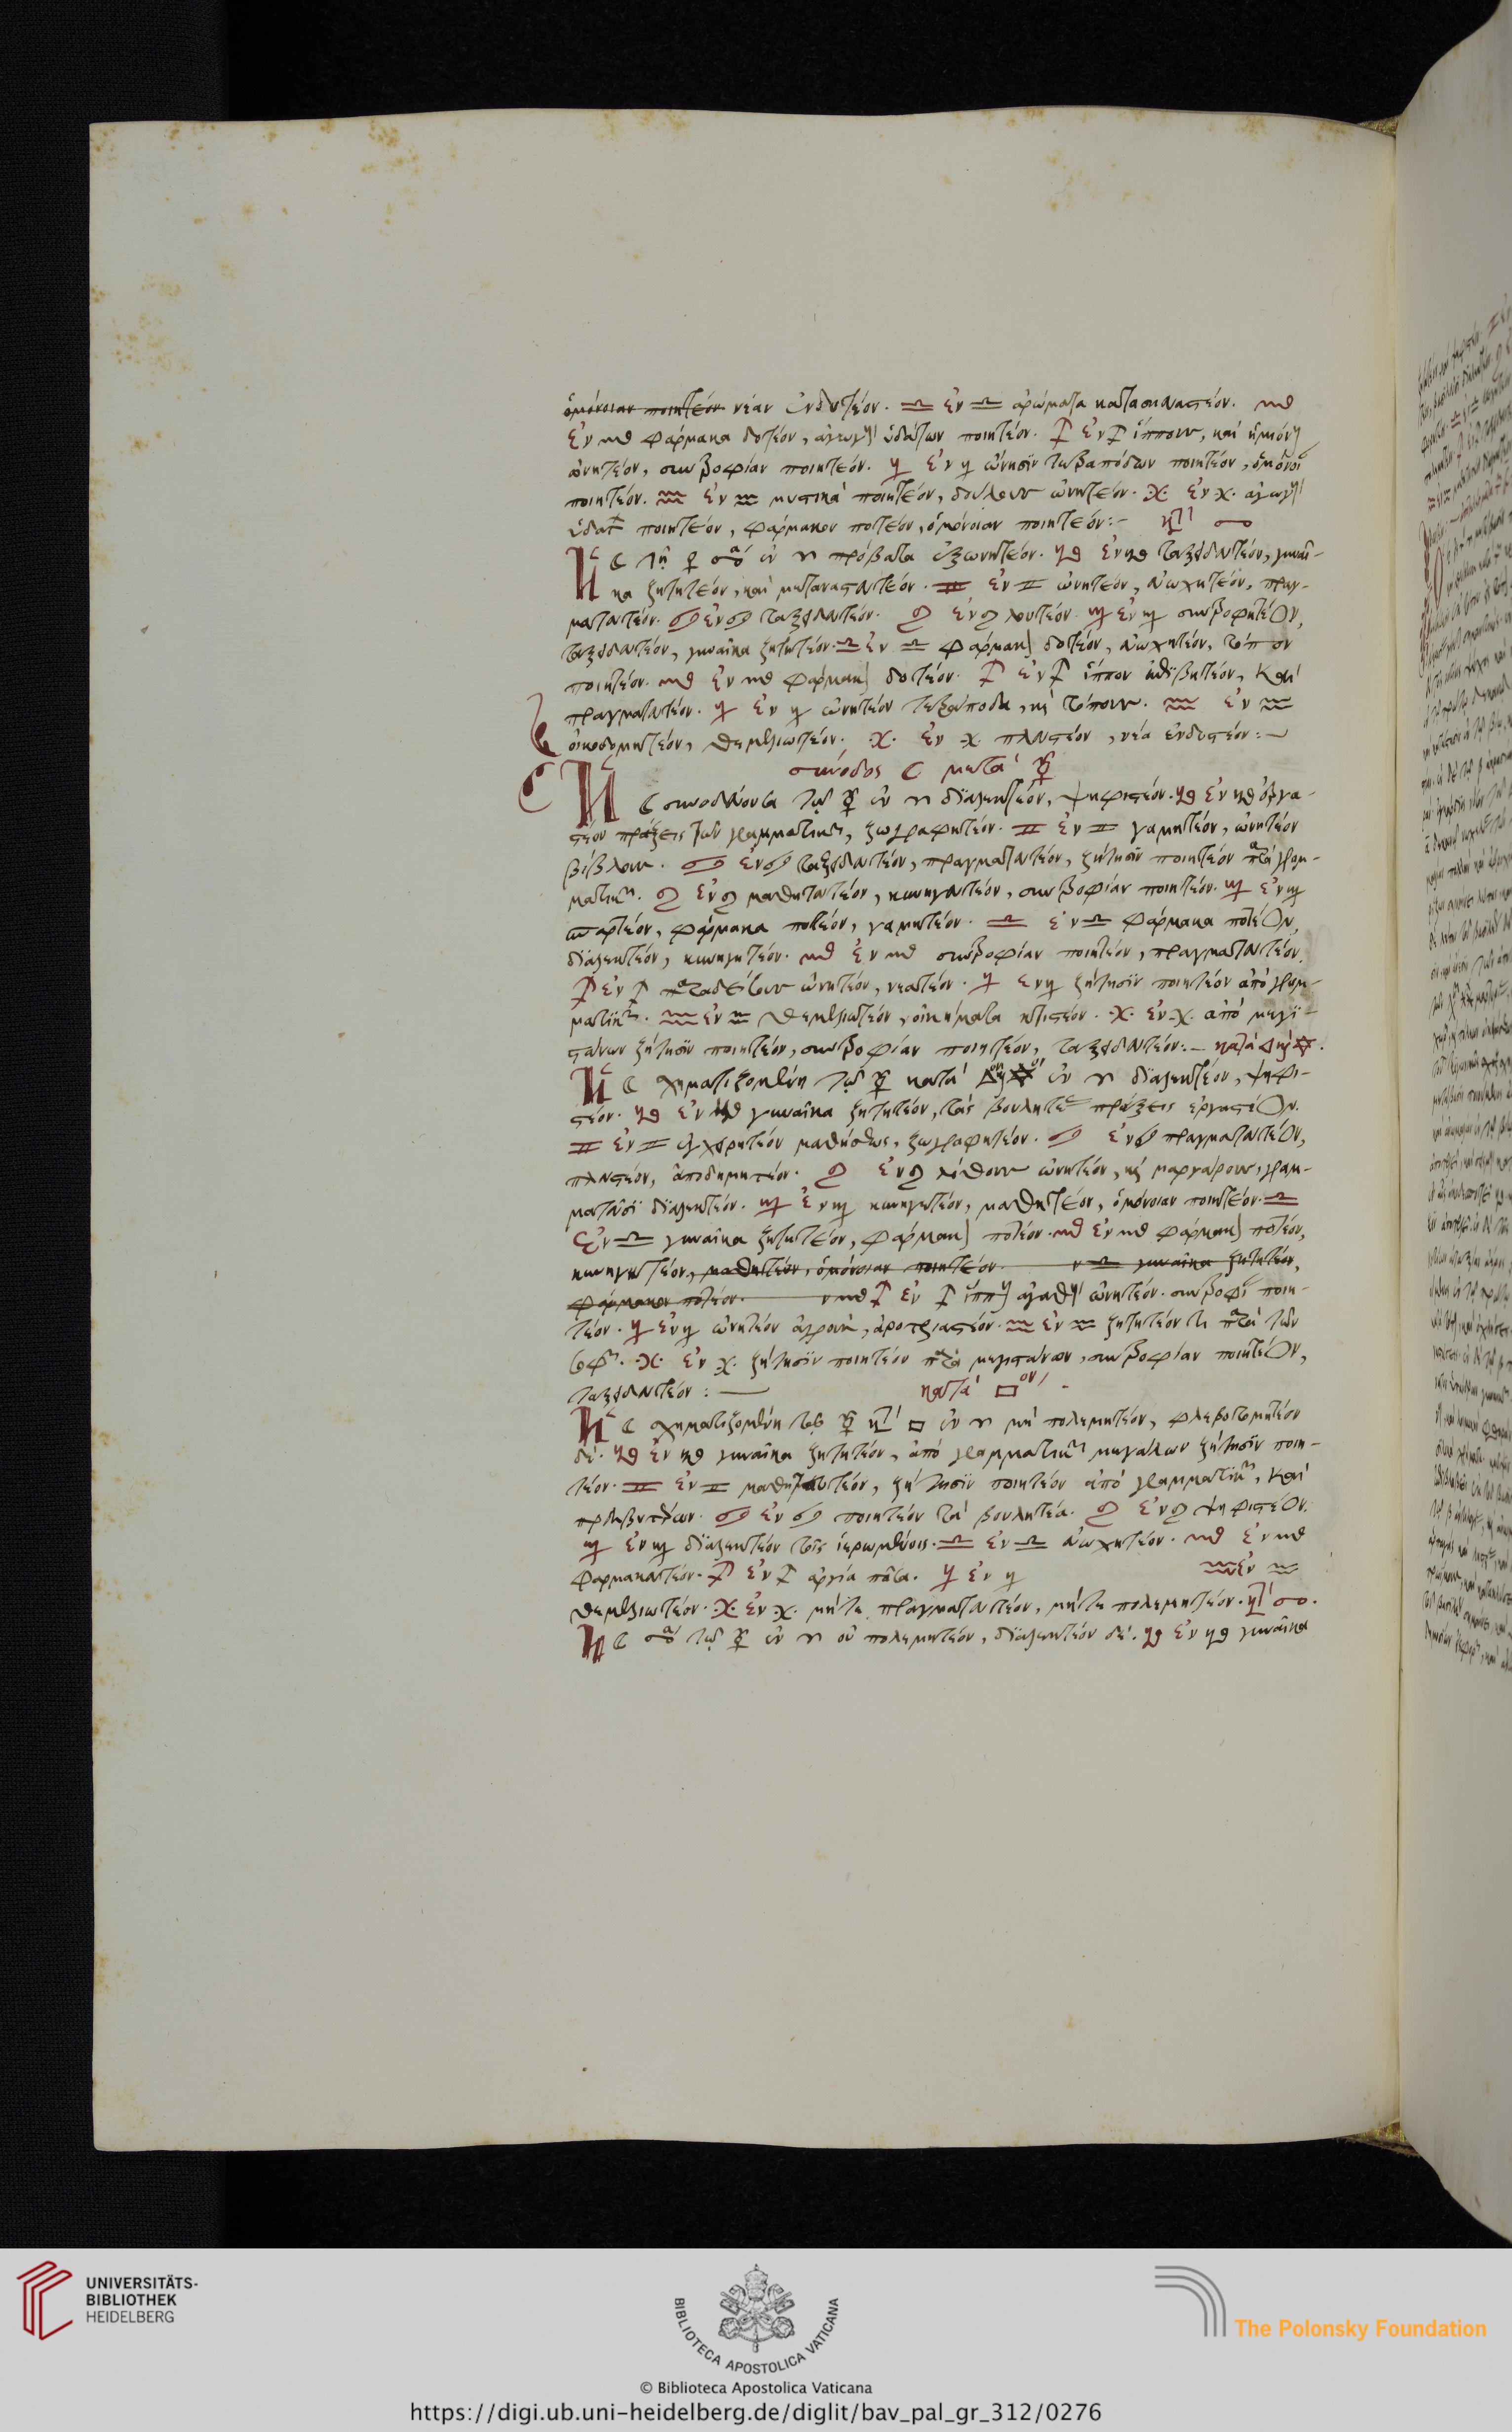 ὁμόνοιαν ποιητέον νέαν ἐνδυτέον. ♎ ἐν ♎ ἀρώματα κατασκευαστέον. ♏
ἐν ♏ φάρμακα δοτέον, ἀγωγὴ ὑδάτων ποιητέον. ♐ ἐν ♐ ἵππους, καὶ ἡμιόνους
ὠνητέον, συντροφίαν ποιητέον. ♑ ἐν ♑ ὤνησιν τετραπόδων ποιητέον, ὁμόνοι
ποιητέον. ♒ ἐν ♒ μυστικὰ ποιητέον, δούλους ὠνητέον. ♓ ἐν ♓ ἀγωγὴ
ὑδάτ ποιητέον, φάρμακον ποτέον, ὁμόνοιαν ποιητέον:- ☍
Ἡ ☾ τῇ ♀ ☍ ἐν ♈ πρόβατα ἐξωνητέον. ♉ ἐν ♉ ταξιδευτέον, γυναῖ-
κα ζητητέον, καὶ μεταναστευτέον. ♊ ἐν ♊ ὠνητέον, εὐωχητέον, πραγ-
ματευτέον. ♋ ἐν ♋ ταξιδευτέον. ♌ ἐν ♌ λουτέον. ♍ ἐν ♍ συντροφητέον,
ταξιδευτέον, γυναῖκα ζητητέον. ♎ ἐν ♎ φάρμακ δοτέον, εὐωχητέον,
ποιητέον. ♏ ἐν ♏ φάρμακ δοτέον. ♐ ἐν ♐ ἵππον καὶ
πραγματευτέον. ♑ ἐν ♑ ὠνητέον τετράποδα, κὶ τόπους. ♒ ἐν ♒
οἰκοδομητέον, θεμελιωτέον. ♓ ἐν ♓ πλευστέον, νέα ἐνδυτέον:-
σύνοδος ☾ μετὰ ☿
Ἡ ☾ συνοδεύουσα τῷ ☿ ἐν ♈ διαλεκτέον, ψηφιστέον. ♉ ἐν ♉ ἐργα-
στέον πράξεις τῶν γραμματικῶν, ζωγραφητέον. ♊ ἐν ♊ γαμητέον, ὠνητέον
βίβλους. ♋ ἐν ♋ ταξιδευτέον, πραγματευτέον, ζήτησιν ποιητέον παρὰ γραμ-
ματικ. ♌ ἐν ♌ μαθητευτέον, κυνηγητέον, συντροφίαν ποιητέον. ♍ ἐν ♍
σπαρτέον, φάρμακα ποτέον, γαμητέον. ♎ ἐν ♎ φάρμακα ποτέον,
διαλεκτέον, κυνηγητέον. ♏ ἐν ♏ συντροφίαν ποιητέον, πραγματευτέον.
♐ ἐν ♐ ὠνητέον, νεατέον. ♑ ἐν ♑ ζήτησιν ποιητέον ἀπὸ γραμ-
ματικ. ♒ ἐν ♒ θεμελιωτέον, οἰκήματα κτιστέον. ♓ ἐν ♓ ἀπὸ μεγι-
στάνων ζήτησιν ποιητέον, συντροφίαν ποιητέον, ταξιδευτέον:- κατὰ △ κὶ ⚹.
Ἡ ☾ σχηματιζομένη τῷ ☿ κατὰ △ον ἢ ⚹ον ἐν ♈ διαλεκτέον, ψηφι-
στέον. ♉ ἐν ♉ γυναῖκα ζητητέον, τὰς βουλητὰς πράξεις ἐργαστέον.
♊ ἐν ♊ ἐγχειρητέον μαθήσεως, ζωγραφητέον. ♋ ἐν ♋ πραγματευτέον,
πλευστέον, ἀποδημητέον. ♌ ἐν ♌ λίθους ὠνητέον, κὶ μαργάρους, γραμ-
ματεῦσι διαλεκτέον. ♍ ἐν ♍ κυνηγητέον, μαθητέον, ὁμόνοιαν ποιητέον. ♎
ἐν ♎ γυναῖκα ζητητέον, φάρμακ ποτέον. ♏ ἐν ♏ φάρμακ ποτέον,
κυνηγητέον, μαθητέον, ὁμόνοιαν ποιητέον. ν ♎ γυναῖκα ζητητέον,
φάρμακον ποτέον. ν ♏ ♐ ἐν ♐ ἵππ ἀγαθὴ ὠνητέον. συντροφὶ ποιη-
τέον. ♑ ἐν ♑ ὠνητέον ἀγρούς, ἀροτριαστέον. ♒ ἐν ♒ ζητητέον τι παρὰ τῶν
σοφ. ♓ ἐν ♓ ζήτησιν ποιητέον παρὰ μεγιστάνων, συντροφίαν ποιητέον,
ταξιδευτέον:- κατὰ □ον.
Ἡ ☾ σχηματιζομένη τῷ ☿ κτ □ ἐν ♈ μὴ πολεμητέον, φλεβοτομητέον
δέ. ♉ ἐν ♉ γυναῖκα ζητητέον, ἀπὸ γραμματικ μεγάλων ζήτησιν ποιη-
τέον. ♊ ἐν ♊ μαθητευτέον, ζήτησιν ποιητέον ἀπὸ γραμματικ, καὶ
πρεσβυτέρων. ♋ ἐν ♋ ποιητέον τὰ βουλητέα. ♌ ἐν ♌ ψηφιστέον.
♍ ἐν ♍ διαλεκτέον τοῖς ἱερωμένοις. ♎ ἐν ♎ εὐωχητέον. ♏ ἐν ♏
φαρμακευτέον. ♐ ἐν ♐ ἀργία πᾶσα. ♑ ἐν ♑ ♒ ἐν ♒
θεμελιωτέον. ♓ ἐν ♓ μήτε πραγματευτέον, μήτε πολεμητέον. κτ ☍.
Ἡ ☾ ☍ τῷ ☿ ἐν ♈ οὐ πολεμητέον, διαλεκτέον δέ. ♉ ἐν ♉ γυναῖκα
UNIVERSITÄTS-
BIBLIOTHEK
HEIDELBERG
BIBLIOTECA APOSTOLICA VATICANA
The Polonsky Foundation
© Biblioteca Apostolica Vaticana
https://digi.ub.uni-heidelberg.de/diglit/bav_pal_gr_312/0276